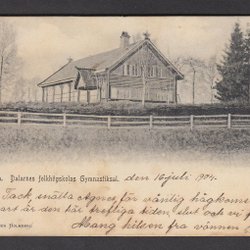 Dalarnes folkhögskolas Gymnastiksal. den 16 juli 1904.
Tack, snälla Agnes för vänlig hågkomst
art är den här trefliga tiden, slut och vi
Mång hilsen fra vännen